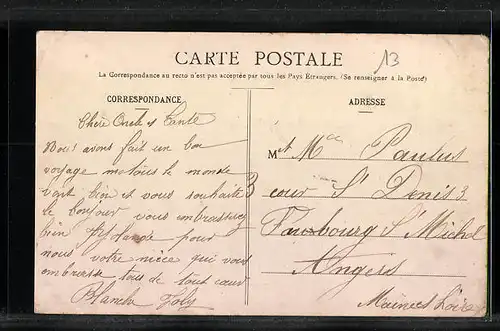 13
CARTE POSTALE
La Correspondance au recto n'est pas acceptée par tous les Pays Etrangers. (Se renseigner à la Poste)
CORRESPONDANCE
Chère Oncle et Tante
Nous avons fait un bon
voyage tous le monde
vont bien et vous souhaite
le bonjour vous embrassez
bien pour
nous votre nièce qui vous
embrasse tous de tout cœur
Blanche Joly
ADRESSE
M et Mme Paulus
3 cour St Denis 3
Faubourg St Michel
Angers
Maine et Loire